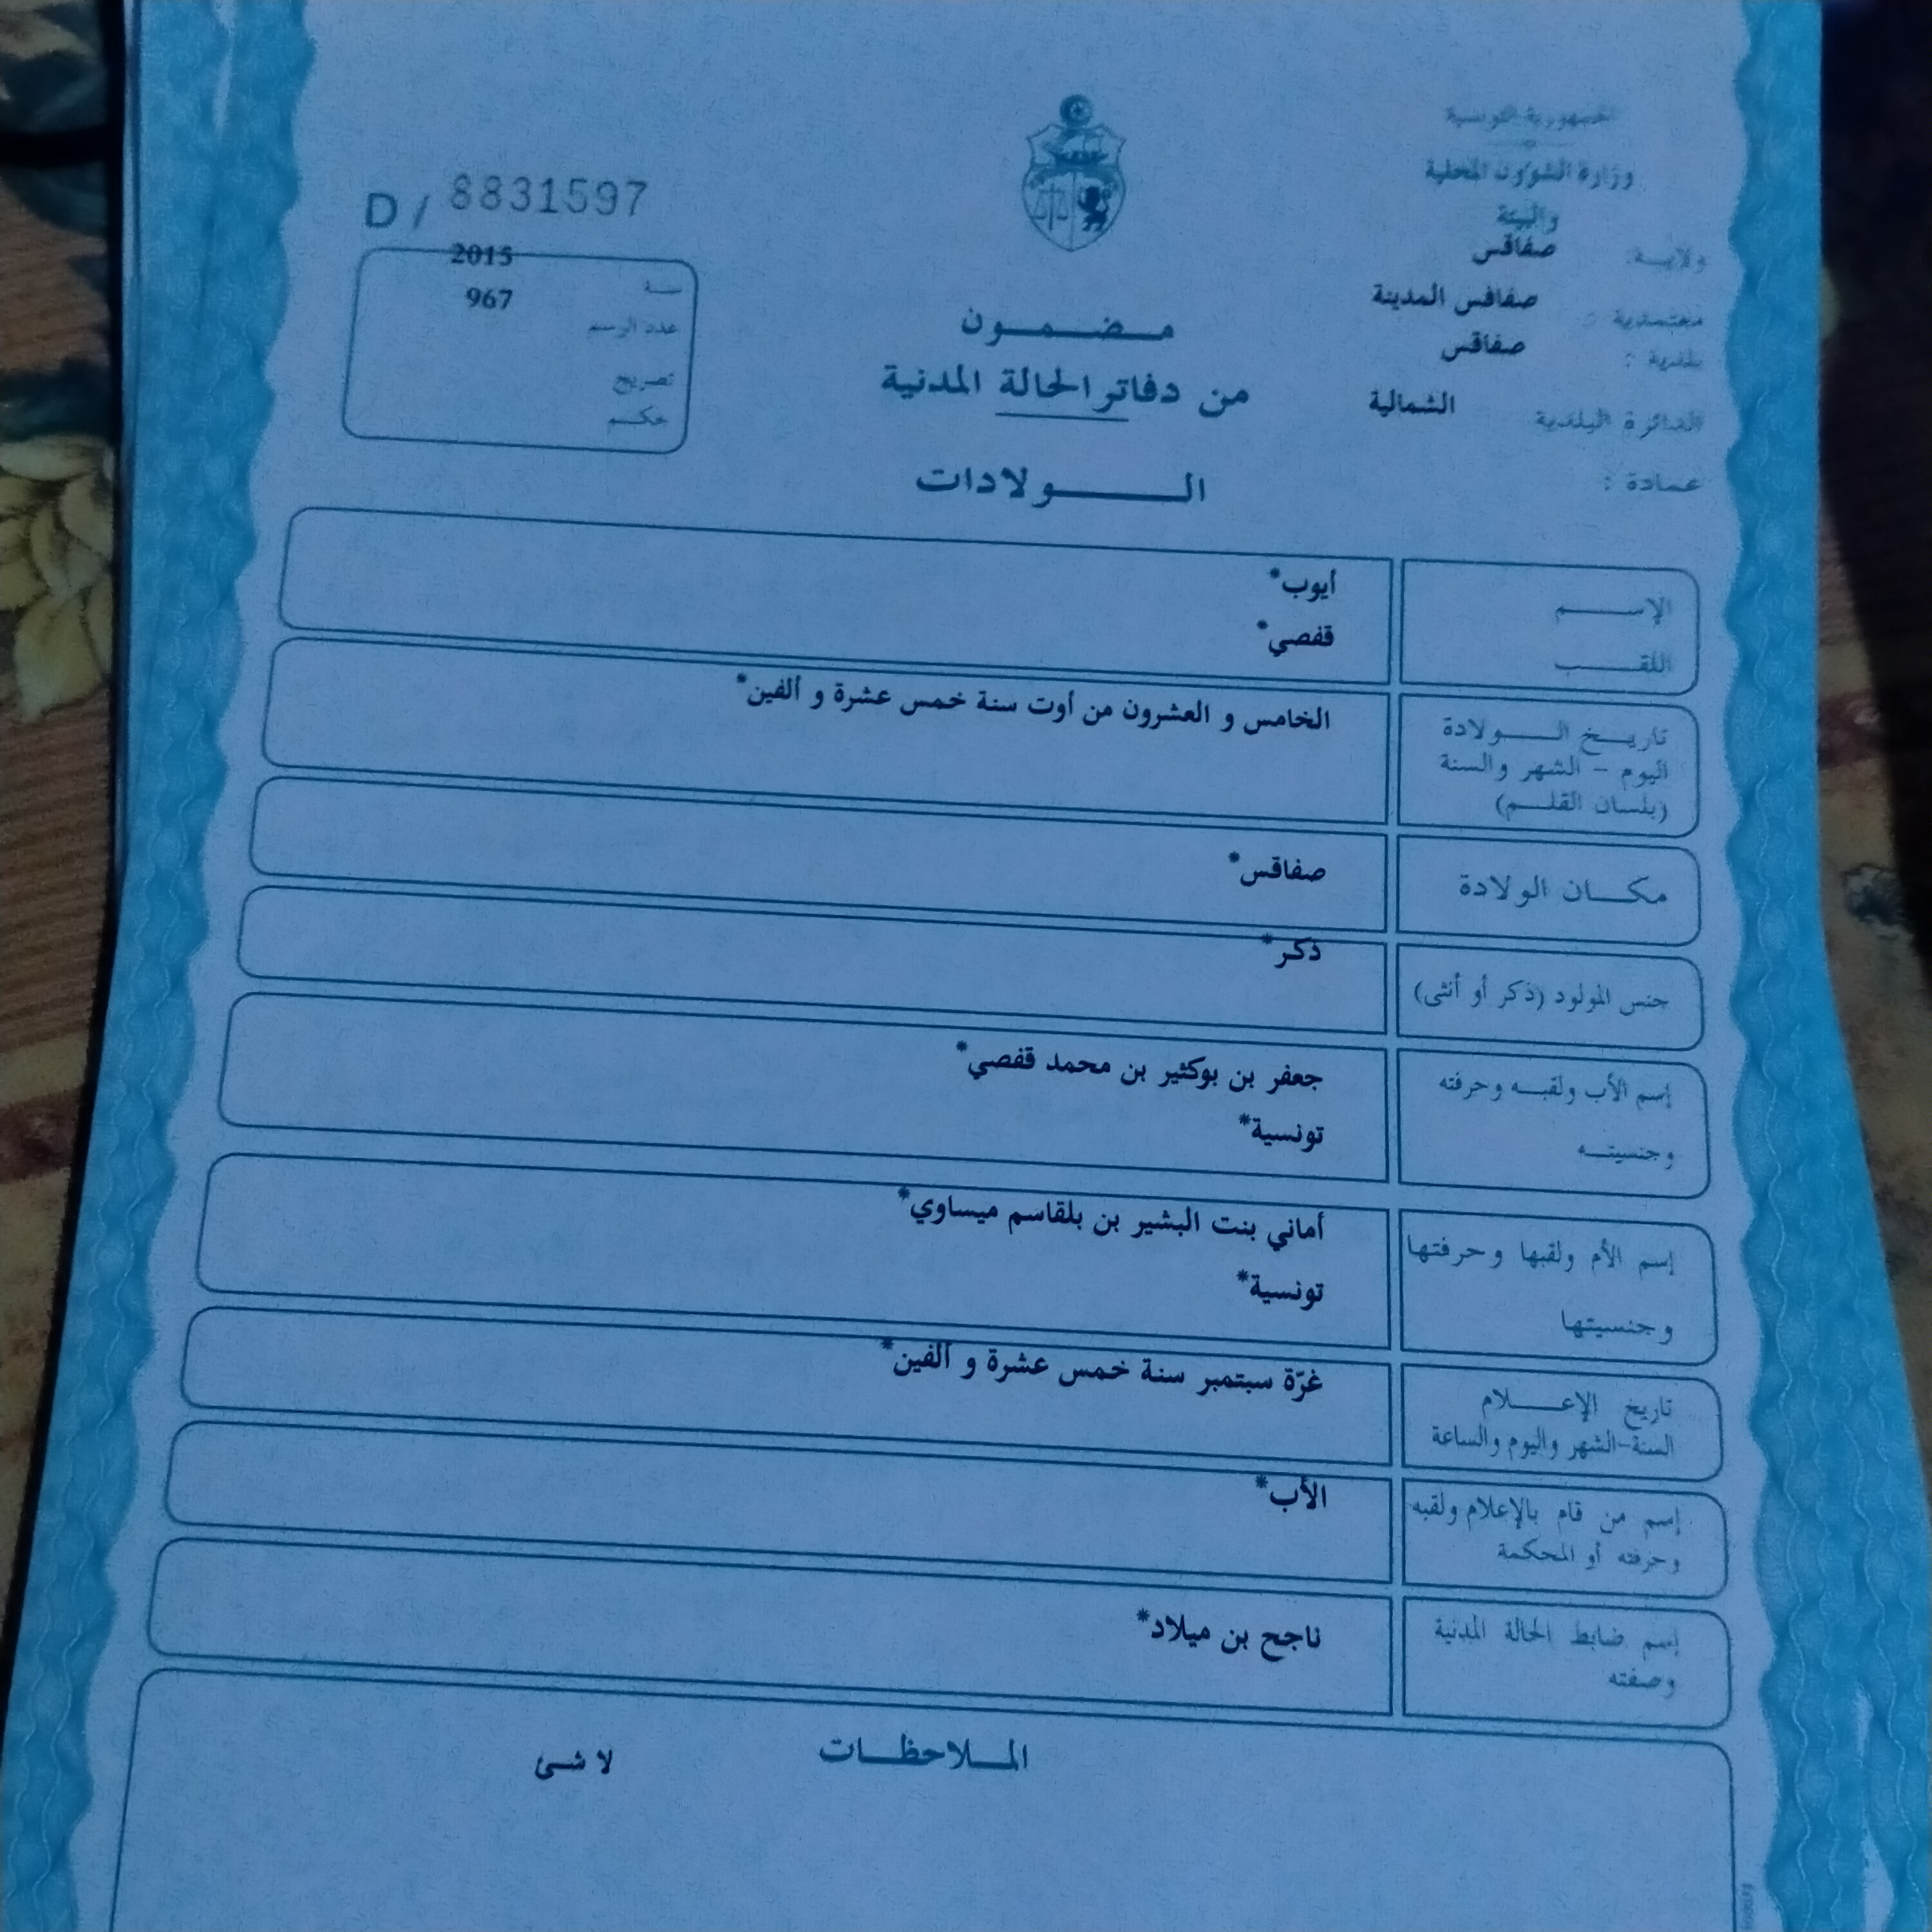 الجمهورية التونسية
وزارة الشؤون المحلية
والبيئة
ولايـة: صفاقس
معتمدية : صفاقس المدينة
بلدية : صفاقس
الدائرة البلدية الشمالية
عمادة :
D / 8831597
سنـة 2015
عدد الرسم 967
تصريح
حكـم
مـضـمـون
من دفاتر الحالة المدنية
الـولادات
الإسـم أيوب*
اللقـب قفصي*
تاريـخ الـولادة الخامس و العشرون من أوت سنة خمس عشرة و ألفين*
اليوم - الشهر والسنة
(بلسان القلـم)
مكـان الولادة صفاقس*
جنس المولود (ذكر أو أنثى) ذكر*
إسم الأب ولقبـه وحرفته جعفر بن بوكثير بن محمد قفصي*
وجنسيتـه تونسية*
إسم الأم ولقبها وحرفتها أماني بنت البشير بن بلقاسم ميساوي*
وجنسيتها تونسية*
تاريخ الإعـلام غرّة سبتمبر سنة خمس عشرة و ألفين*
السنة-الشهر واليوم والساعة
إسم من قام بالإعلام ولقبه الأب*
وحرفته أو المحكمة
إسم ضابط الحالة المدنية ناجح بن ميلاد*
وصفته
المـلاحظـات لا شئ